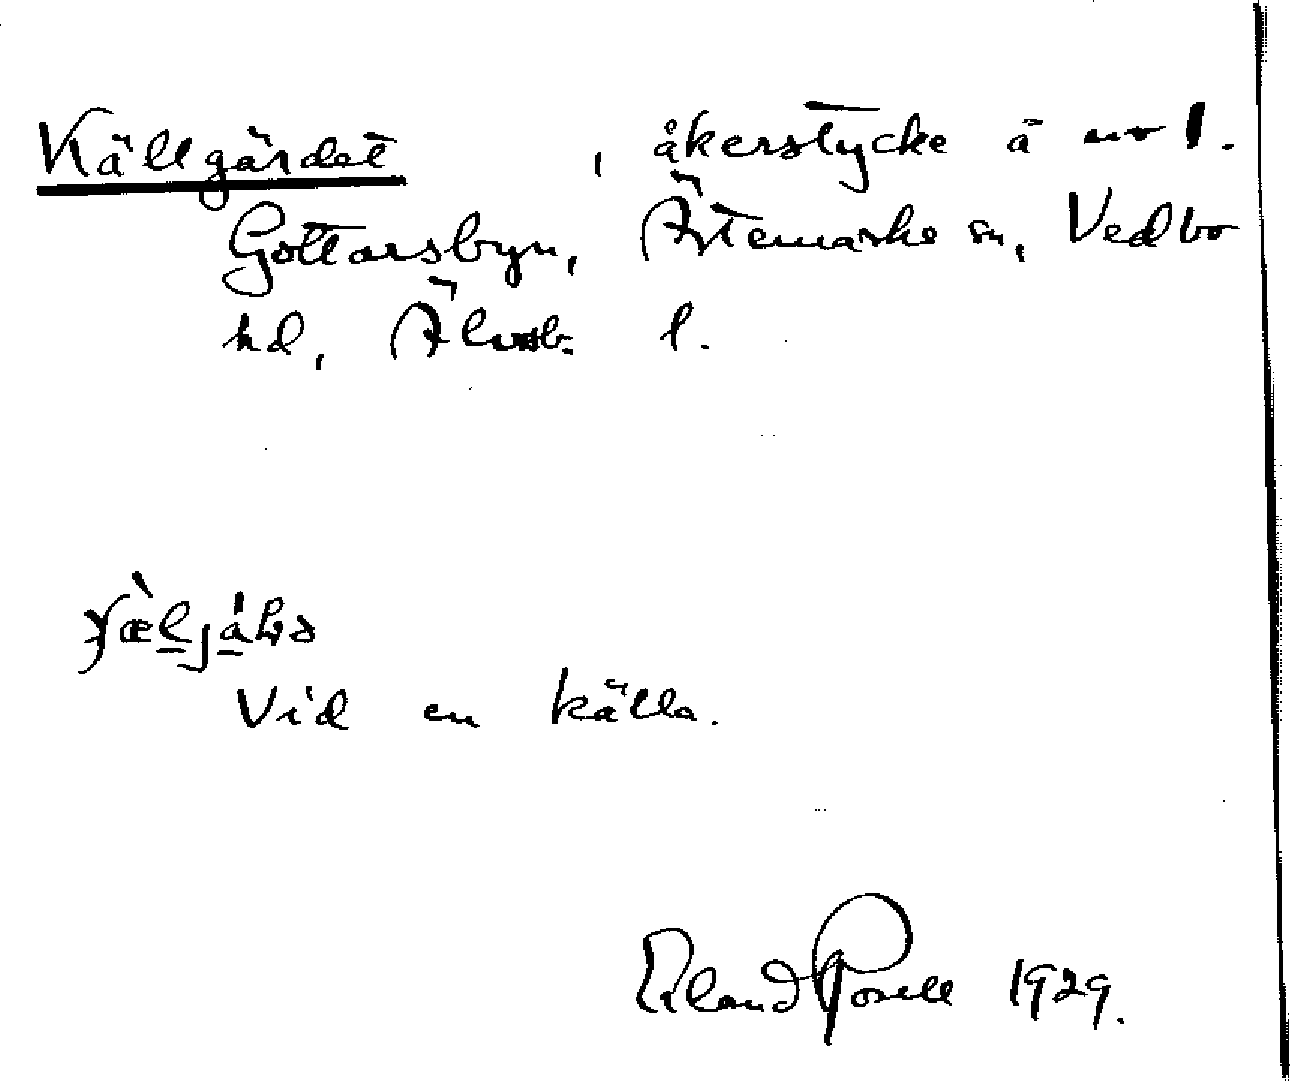 Källgärdet, åkerstycke å nr 1.
Gottarsbyn, Ärtemarks sn, Vedbo
hd, Älvsb. l.
Vid en källa.
Erland Rosell 1929.